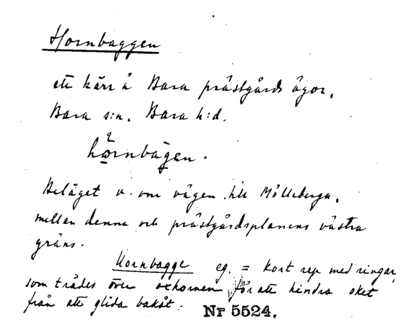 Hornbaggen
ett kärr å Bara prästgårds ägor.
Bara s:n. Bara h:d.
Beläget v. om vägen till Mölleberga,
mellan denna och prästgårdsplanens västra
gräns.
Hornbagge eg. = kort rep med ringar,
som trädes över oxhornen för att hindra oket
från att glida bakåt.
Nr 5524.